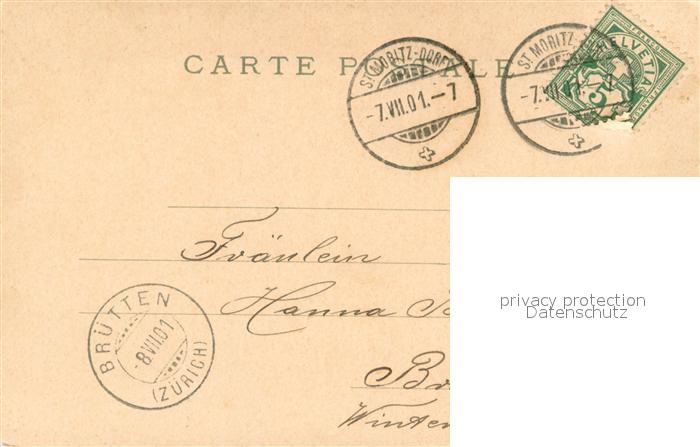 CARTE POSTALE
ST MORITZ-DORF
-7.VII.01.-7
ST MORITZ-DORF
-7.VII.01.-7
HELVETIA
FRANCO
5
Fräulein
Hanna
privacy protection
Datenschutz
BRÜTTEN
-8VII.01
(ZÜRICH)
Winter